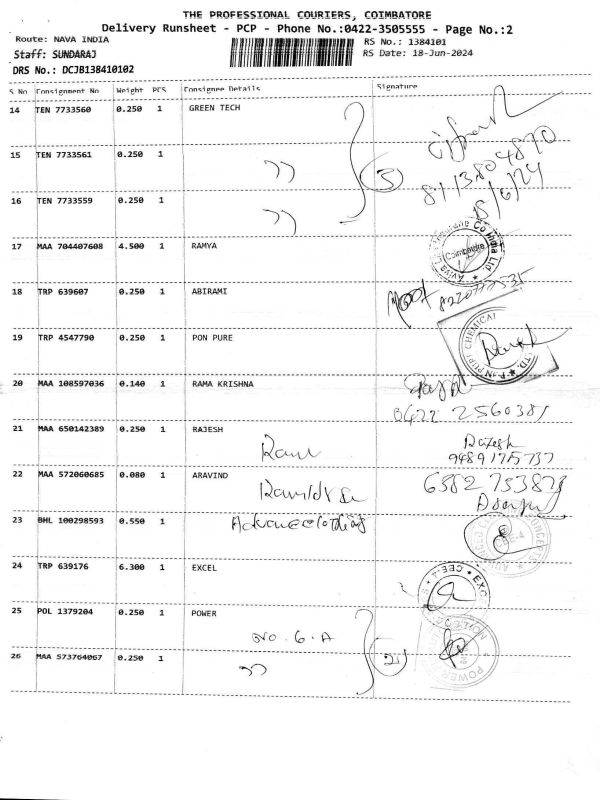 THE PROFESSIONAL COURIERS, COIMBATORE
Delivery Runsheet - PCP - Phone No.:0422-3505555 - Page No.:2
Route: NAVA INDIA
RS No.: 1384101
Staff: SUNDARAJ
RS Date: 18-Jun-2024
DRS No.: DCJB138410102
S No Consignment No Weight PCS Consignee Details Signature
14 TEN 7733560 0.250 1 GREEN TECH
8113804870
15 TEN 7733561 0.250 1 ,, 3
18/6/24
16 TEN 7733559 0.250 1 ,,
17 MAA 704407608 4.500 1 RAMYA
Coimbatore
18 TRP 639607 0.250 1 ABIRAMI
19 TRP 4547790 0.250 1 PON PURE
CHEMICAL
20 MAA 108597036 0.140 1 RAMA KRISHNA
0422 2560381
21 MAA 650142389 0.250 1 RAJESH
Rajesh
22 MAA 572060685 0.080 1 ARAVIND
23 BHL 100298593 0.550 1 Advanceclothing
24 TRP 639176 6.300 1 EXCEL
25 POL 1379204 0.250 1 POWER
NO.6.A
26 MAA 573764067 0.250 1 ,, 2
POWER